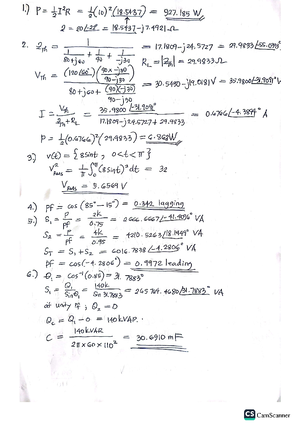 1.) P = 1/2 I²R = 1/2 (10)² (18.5437) = 927.185 W
Z = 20∠-22° = 18.5437 - j7.4921 Ω
2. Zth = 1 / (1/(80+j60) + 1/90 + 1/-j30) = 17.1809 - j24.5727 = 29.9833∠-55.093°
RL = |Zth| = 29.9833 Ω
Vth = (120∠60°)(90×-j30 / 90-j30) / (80+j60 + (90)(-j30)/90-j30) = 35.9800∠-31.909° V
I = Vth / (Zth + RL) = 35.9800∠-31.909° / (17.1809 - j24.5727 + 29.9833) = A
P = 1/2 (0.6766)² (29.9833) = 6.863 W
3.) v(t) = { 8 sin t , 0 < t < π }
V²rms = 1/π ∫ (8 sin t)² dt = 32
Vrms = 5.6569 V
4.) pf = cos (85° - 15°) = 0.342 lagging
5.) S1 = P/pf = 2k/0.75 = 2666.6667∠-41.4096° VA
S2 = P/pf = 4k/0.95 = 4210.5263∠18.1949° VA
ST = S1 + S2 = ∠-4.2806° VA
pf = cos(-4.2806°) = 0.9972 leading
6.) θ1 = cos⁻¹(0.85) = 31.7883°
S1 = Q1 / sin θ1 = 140k / sin 31.7883 = 265.764.4680∠31.7883° VA
at unity pf, Q2 = 0
Qc = Q1 - 0 = 140 kVAR.
C = 140 kVAR / 2π × 60 × 110² = 30.6910 mF
CS CamScanner